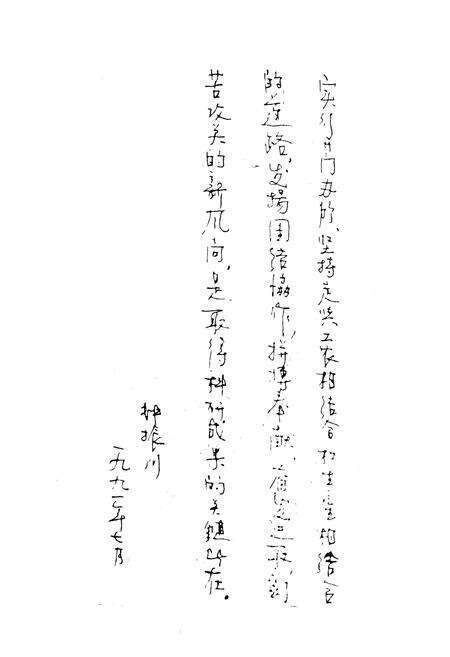 实行开门办所,坚持走与工农相结合和生产相结合
的道路,发扬团结协作,拼搏奉献,奋进取,刻
苦攻关的新风尚,是取得科研成果的关键所在。
振川
一九九一年七月